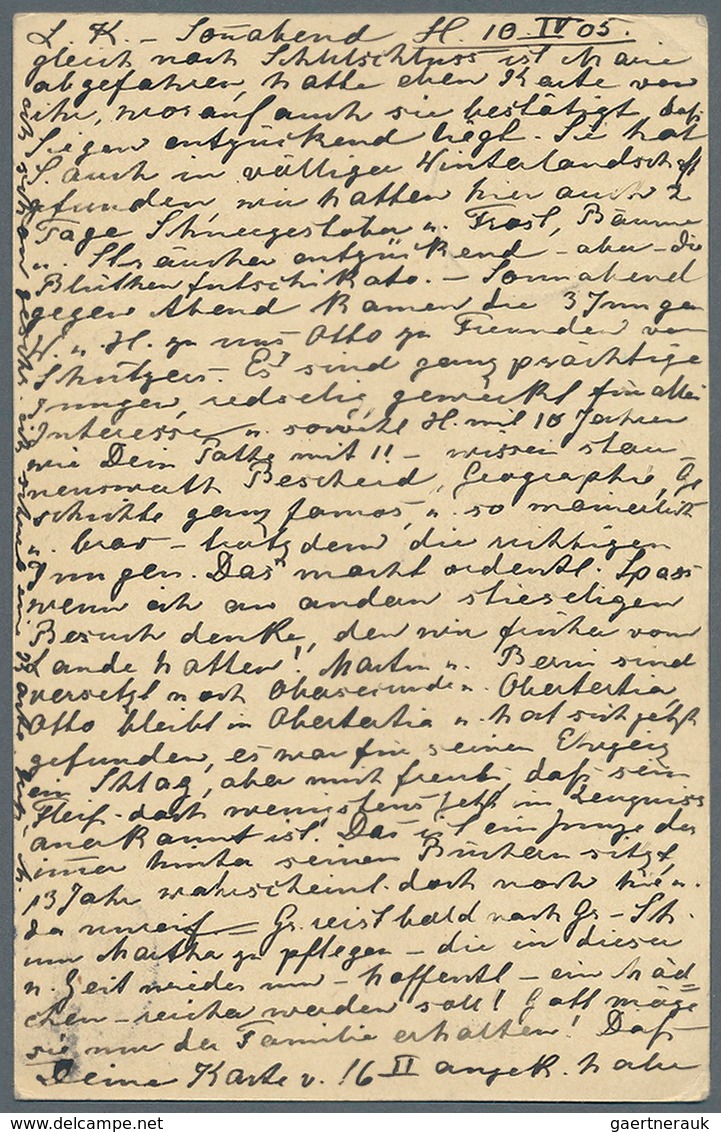 L. K. – Sonnabend H. 10. IV 05.
gleich nach Schulschluss ist Marie
abgefahren, hatte eben Karte von
ihr, worauf auch sie bestätigt daß
Siegen entzückend liegt. Sie hat
S. auch in völliger Winterlandschaft
gefunden wir hatten hier auch 2
Tage Schneegestöber u. Frost, Bäume
u. Sträucher entzückend – aber – die
Blüthen futschikato. – Sonnabend
gegen Abend kamen die 3 Jungen
W. u. H. zu uns Otto zu Freunden von
Es sind ganz prächtige
Jungen, redselig, geweckt für alles
Interesse u. sowohl H. mit 10 Jahren
wie Dein Pathe mit 11 – wissen stau-
nenswerth Bescheid, Geographie, Ge
schichte ganz famos, u. so manierlich
u. brav – trotzdem die richtigen
Jungen. Das macht ordentl. Spass
wenn ich an andern stieseligen
Besuch denke, den wir früher vom
Lande hatten! Martin u. Bernh sind
versetzt nach Obersecunda u. Obertertia,
Otto bleibt in Obertertia u. hat sich jetzt
gefunden, es war für seinen Ehrgeiz
ein Schlag, aber mich freut daß sein
Fleiß doch wenigstens jetzt in Zeugniss
anerkannt ist. Das ist ein Junge der
immer hinter seinen Büchern sitzt,
13 Jahr wahrscheinl. doch noch hie u.
da unreif – Gr. reist bald nach Gr. – Sch.
um Martha zu pflegen – die in dieser
u. Zeit wieder um – hoffentl – ein Mäd
chen – reicher werden soll! Gott möge
sie nur der Familie erhalten! Daß
Deine Karte v. 16 II angek. habe
ich schon ich schrieb eine Karte.
gaertnerauk